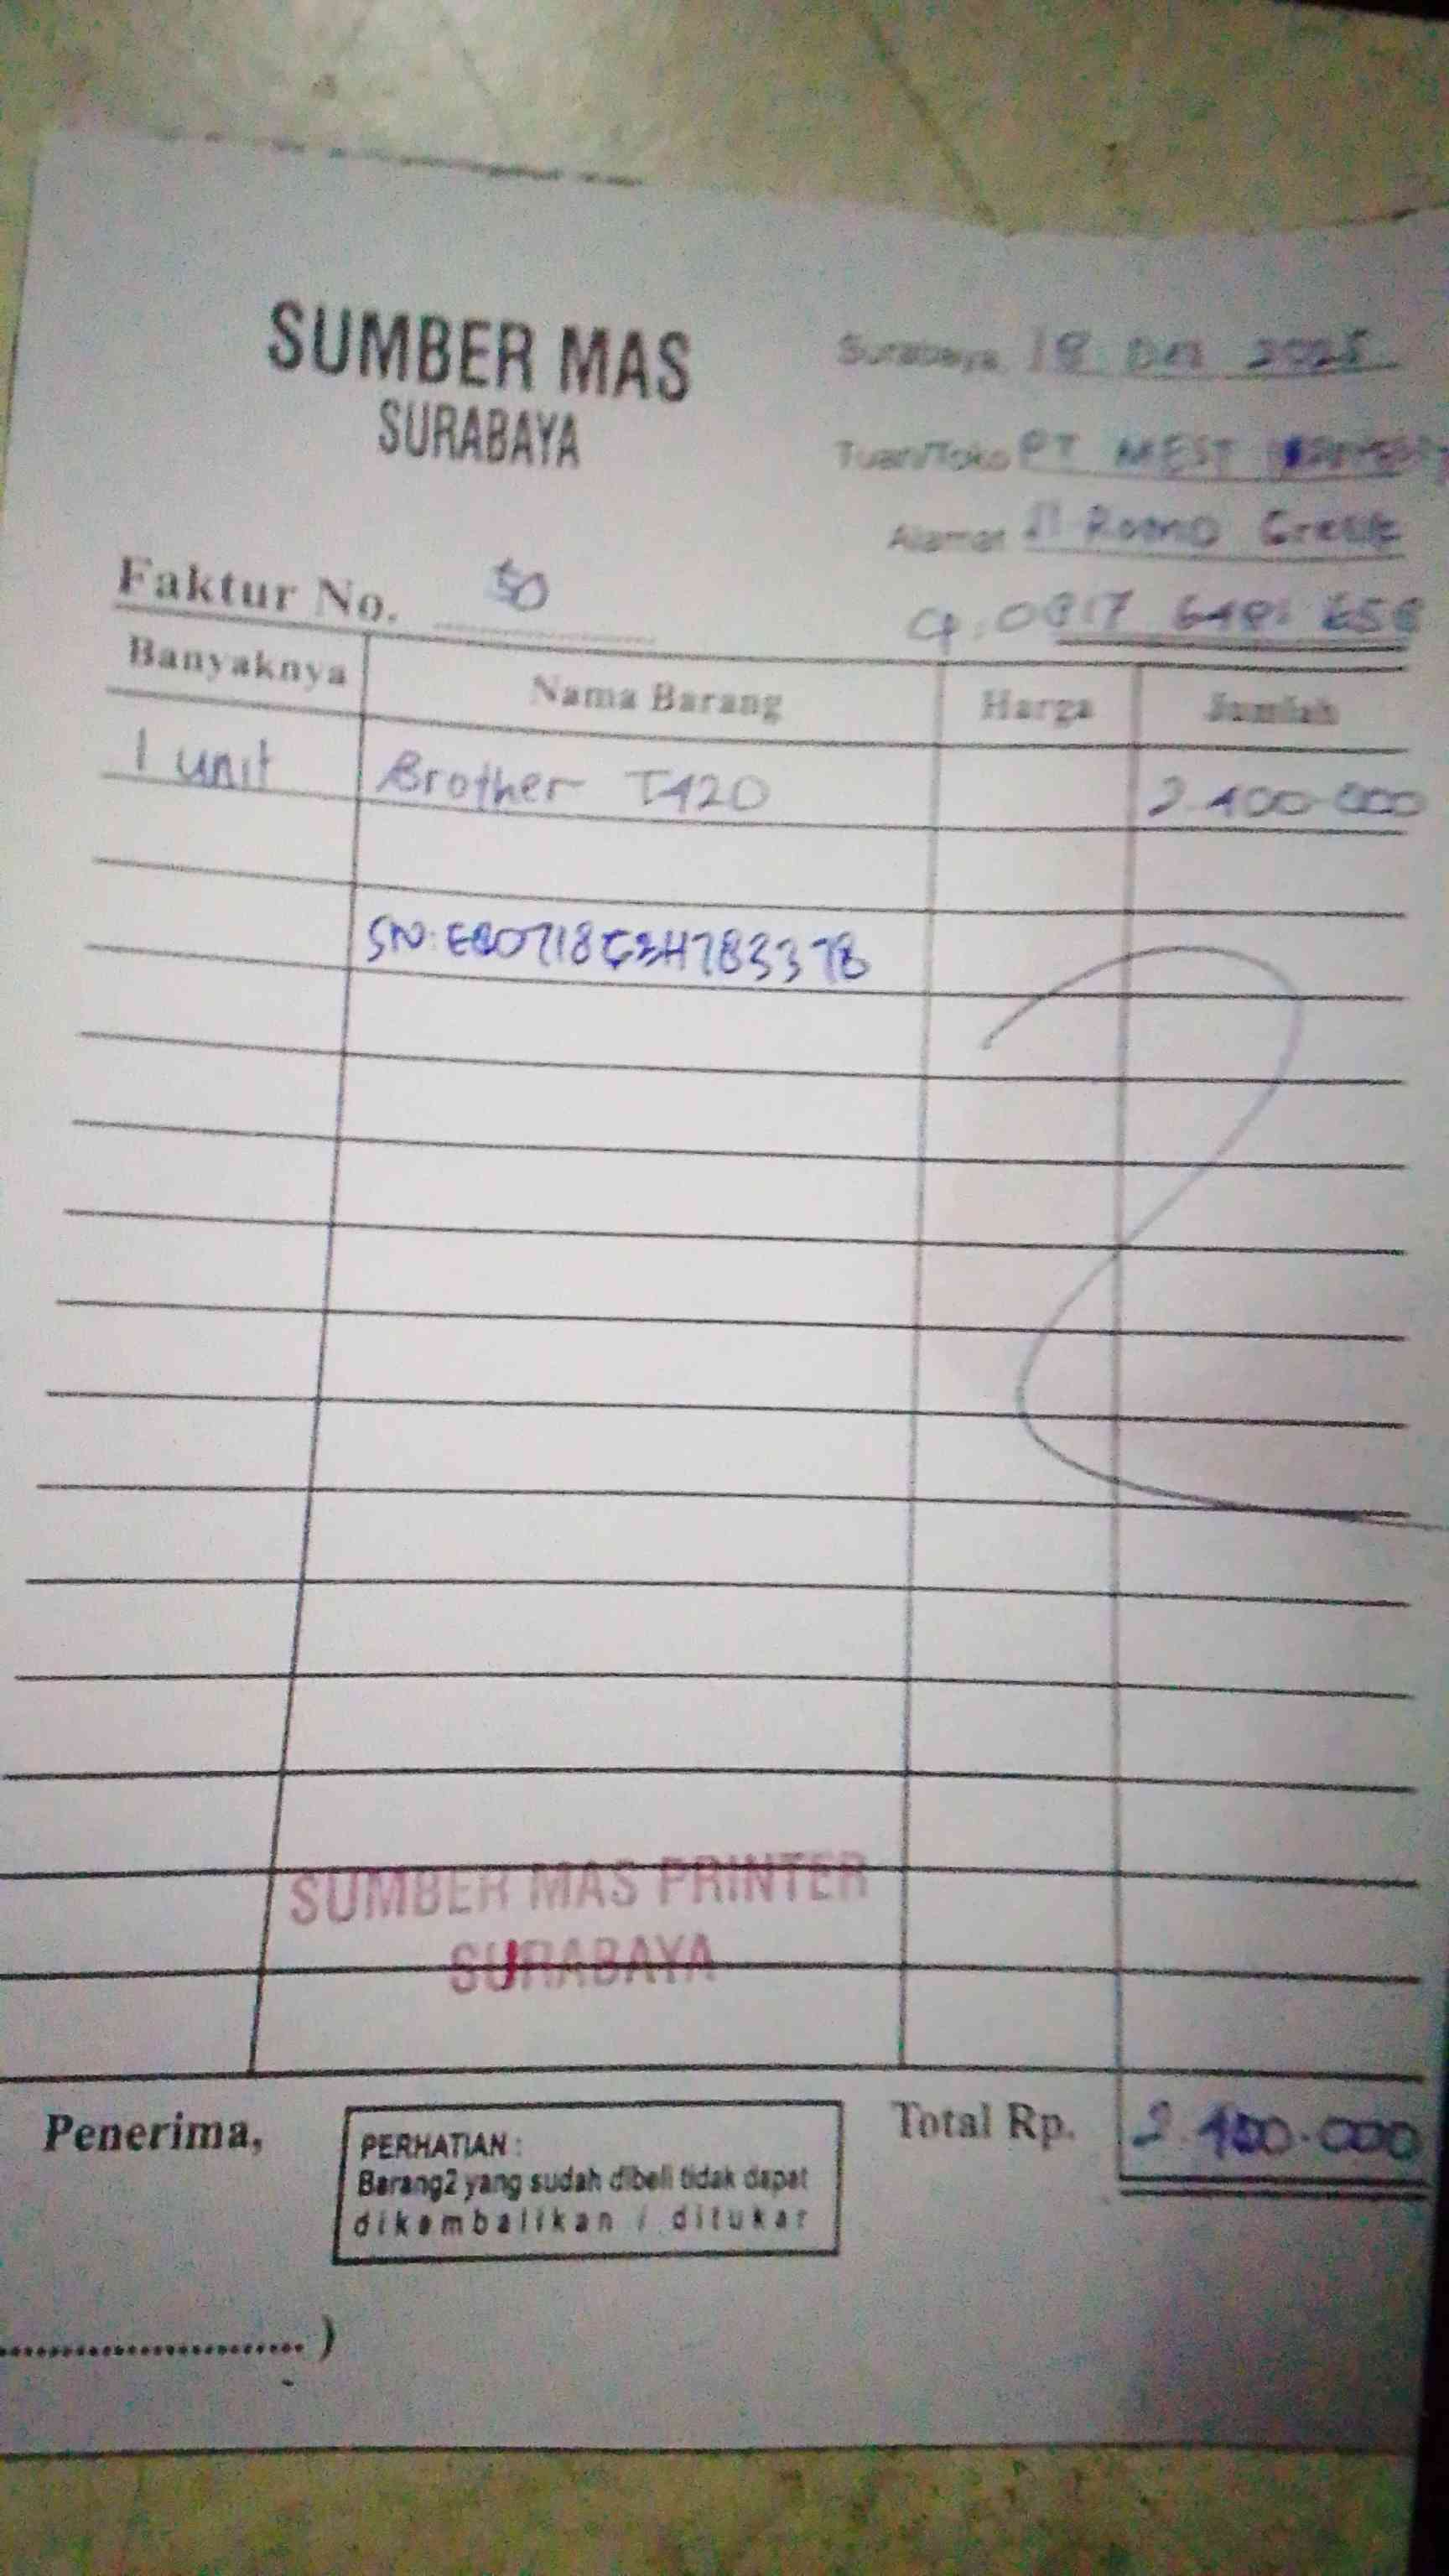 SUMBER MAS
SURABAYA
Surabaya, 18 2025
Tuan/Toko PT MEST
Alamat Jl Romo Gresik
Faktur No. 50
Banyaknya Nama Barang Harga Jumlah
1 unit Brother T420 2.400.000
SN:
SUMBER MAS PRINTER
SURABAYA
Penerima,
PERHATIAN :
Barang2 yang sudah dibeli tidak dapat
dikembalikan / ditukar
Total Rp. 2.400.000
........................ )